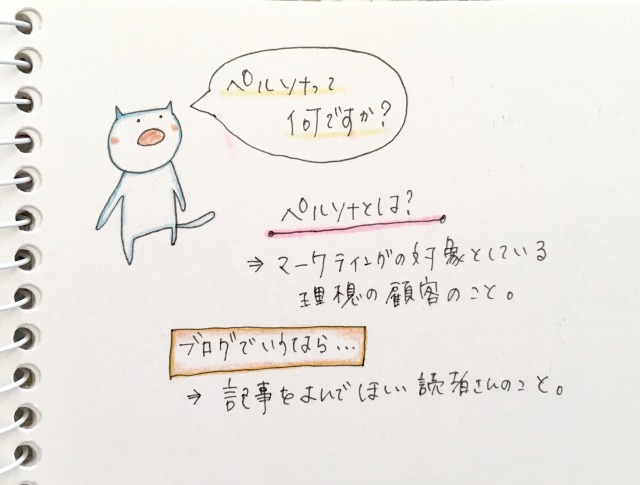 ペルソナって
何ですか?
ペルソナとは?
⇒ マーケティングの対象としている
理想の顧客のこと。
ブログでいうなら…
⇒ 記事をよんでほしい読者さんのこと。